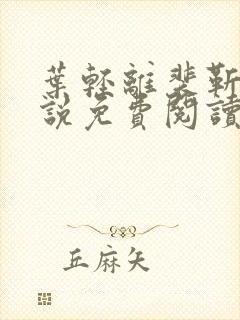 葉輕離裴靳
說免費閱讀
丘麻矢